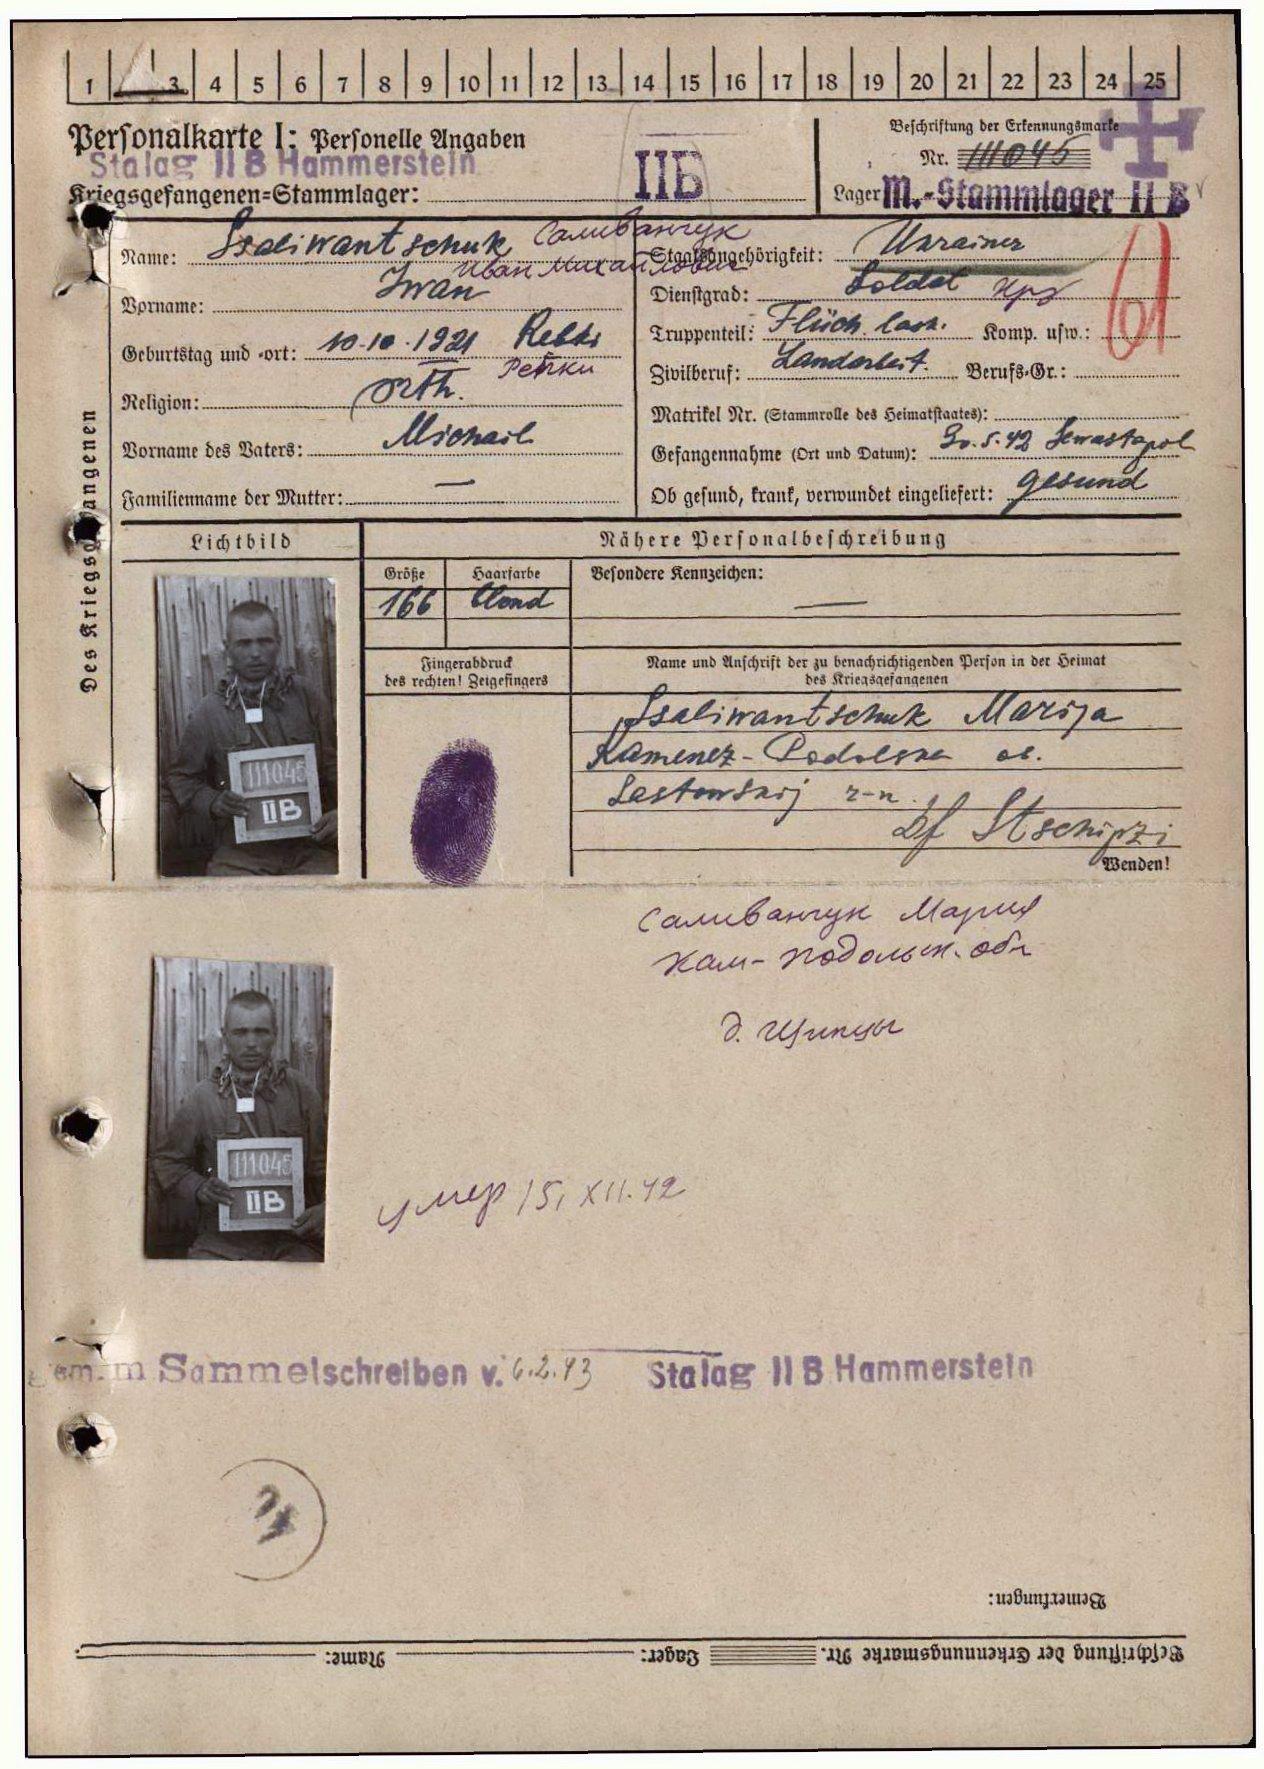 1 3 4 5 6 7 8 9 10 11 12 13 14 15 16 17 18 19 20 21 22 23 24 25
Personalkarte I: Personelle Angaben
Stalag II B Hammerstein
Kriegsgefangenen-Stammlager:
IIБ
Beschriftung der Erkennungsmarke
Nr. 111045
Lager M.-Stammlager II B
Des Kriegsgefangenen
Name: Ssaliwantschuk Саливанчук
Иван Михайлович
Vorname: Iwan
Geburtstag und -ort: 10.10.1921 Rebki
Репки
Religion: orth.
Vorname des Vaters: Michail
Familienname der Mutter: —
Staatsangehörigkeit: Ukrainer
Dienstgrad: Soldat кр
Truppenteil: Komp. usw.:
61
Zivilberuf: Landarbeit. Berufs-Gr.:
Matrikel Nr. (Stammrolle des Heimatstaates):
Gefangennahme (Ort und Datum): 30.5.42 Sewastapol
Ob gesund, krank, verwundet eingeliefert: gesund
Lichtbild
Nähere Personalbeschreibung
Größe Haarfarbe Besondere Kennzeichen:
166 blond —
Fingerabdruck
des rechten! Zeigefingers
Name und Anschrift der zu benachrichtigenden Person in der Heimat
des Kriegsgefangenen
Ssaliwantschuk Marija
Kamenez-Podolska ob.
r-n.
Df Stschipzi
Wenden!
111045
IIB
Саливанчук Мария
Кам-Подольск. обл
д. Щипцы
111045
IIB
умер 15.XII.42
Gem. im Sammelschreiben v. 6.2.43 Stalag II B Hammerstein
Bemerkungen:
Beschriftung der Erkennungsmarke Nr. Lager: Name: